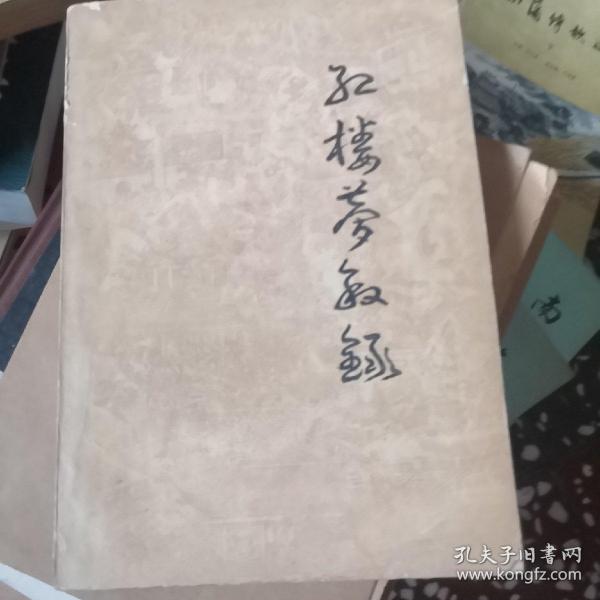 红楼梦叙録
南
孔夫子旧书网
www.kongfz.com